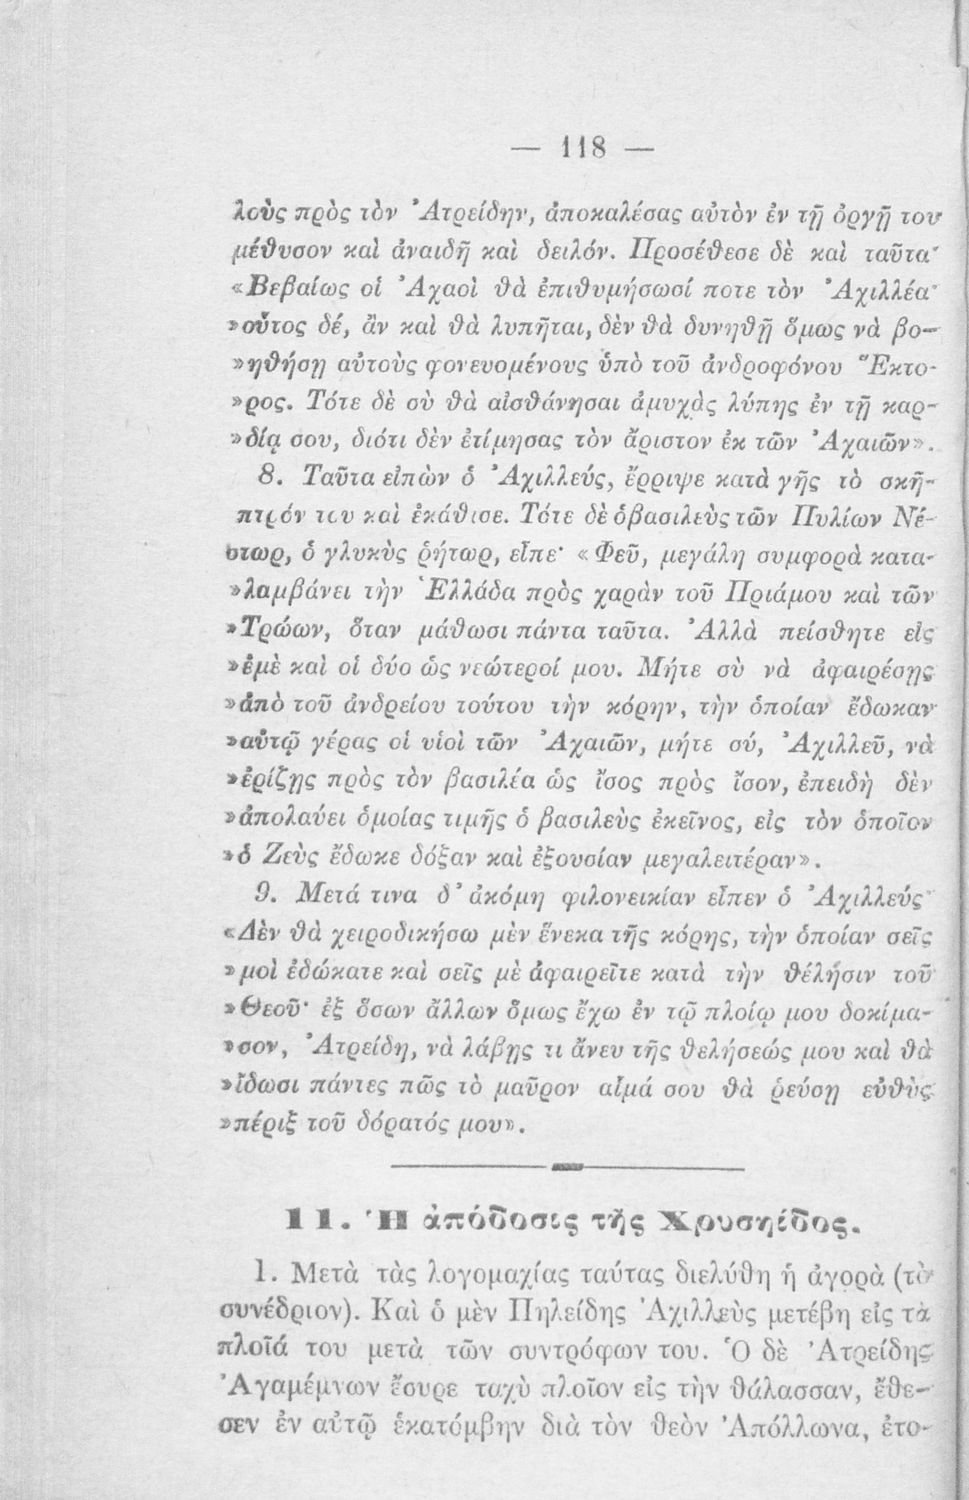 — 118 —
λοὺς πρὸς τὸν Ἀτρείδην, ἀποκαλέσας αὐτὸν ἐν τῇ ὀργῇ του
μέθυσον καὶ ἀναιδῆ καὶ δειλόν. Προσέθεσε δὲ καὶ ταῦτα·
«Βεβαίως οἱ Ἀχαοὶ θὰ ἐπιθυμήσωσί ποτε τὸν Ἀχιλλέα·
»οὗτος δέ, ἂν καὶ θὰ λυπῆται, δὲν θὰ δυνηθῇ ὅμως νὰ βο-
»ηθήσῃ αὐτοὺς φονευομένους ὑπὸ τοῦ ἀνδροφόνου Ἕκτο-
»ρος. Τότε δὲ σὺ θὰ αἰσθάνησαι ἀμυχὰς λύπης ἐν τῇ καρ-
»δίᾳ σου, διότι δὲν ἐτίμησας τὸν ἄριστον ἐκ τῶν Ἀχαιῶν».
8. Ταῦτα εἰπὼν ὁ Ἀχιλλεύς, ἔρριψε κατὰ γῆς τὸ σκῆ-
πτρόν του καὶ ἐκάθισε. Τότε δὲ ὁ βασιλεὺς τῶν Πυλίων Νέ-
στωρ, ὁ γλυκὺς ῥήτωρ, εἶπε· «Φεῦ, μεγάλη συμφορὰ κατα-
»λαμβάνει τὴν Ἑλλάδα πρὸς χαρὰν τοῦ Πριάμου καὶ τῶν
»Τρώων, ὅταν μάθωσι πάντα ταῦτα. Ἀλλὰ πείσθητε εἰς
»ἐμὲ καὶ οἱ δύο ὡς νεώτεροί μου. Μήτε σὺ νὰ ἀφαιρέσῃς
»ἀπὸ τοῦ ἀνδρείου τούτου τὴν κόρην, τὴν ὁποίαν ἔδωκαν
»αὐτῷ γέρας οἱ υἱοὶ τῶν Ἀχαιῶν, μήτε σύ, Ἀχιλλεῦ, νὰ
»ἐρίζῃς πρὸς τὸν βασιλέα ὡς ἴσος πρὸς ἴσον, ἐπειδὴ δὲν
»ἀπολαύει ὁμοίας τιμῆς ὁ βασιλεὺς ἐκεῖνος, εἰς τὸν ὁποῖον
»ὁ Ζεὺς ἔδωκε δόξαν καὶ ἐξουσίαν μεγαλειτέραν».
9. Μετά τινα δ' ἀκόμη φιλονεικίαν εἶπεν ὁ Ἀχιλλεύς·
«Δὲν θὰ χειροδικήσω μὲν ἕνεκα τῆς κόρης, τὴν ὁποίαν σεῖς
»μοὶ ἐδώκατε καὶ σεῖς μὲ ἀφαιρεῖτε κατὰ τὴν θέλησιν τοῦ
»Θεοῦ· ἐξ ὅσων ἄλλων ὅμως ἔχω ἐν τῷ πλοίῳ μου δοκίμα-
»σον, Ἀτρείδη, νὰ λάβῃς τι ἄνευ τῆς θελήσεώς μου καὶ θὰ
»ἴδωσι πάντες πῶς τὸ μαῦρον αἷμά σου θὰ ῥεύσῃ εὐθὺς
»πέριξ τοῦ δόρατός μου».
11. Ἡ ἀπόδοσις τῆς Χρυσηίδος.
1. Μετὰ τὰς λογομαχίας ταύτας διελύθη ἡ ἀγορὰ (τὸ
συνέδριον). Καὶ ὁ μὲν Πηλείδης Ἀχιλλεὺς μετέβη εἰς τὰ
πλοῖά του μετὰ τῶν συντρόφων του. Ὁ δὲ Ἀτρείδης
Ἀγαμέμνων ἔσυρε ταχὺ πλοῖον εἰς τὴν θάλασσαν, ἔθε-
σεν ἐν αὐτῷ ἑκατόμβην διὰ τὸν θεὸν Ἀπόλλωνα, ἐτο-